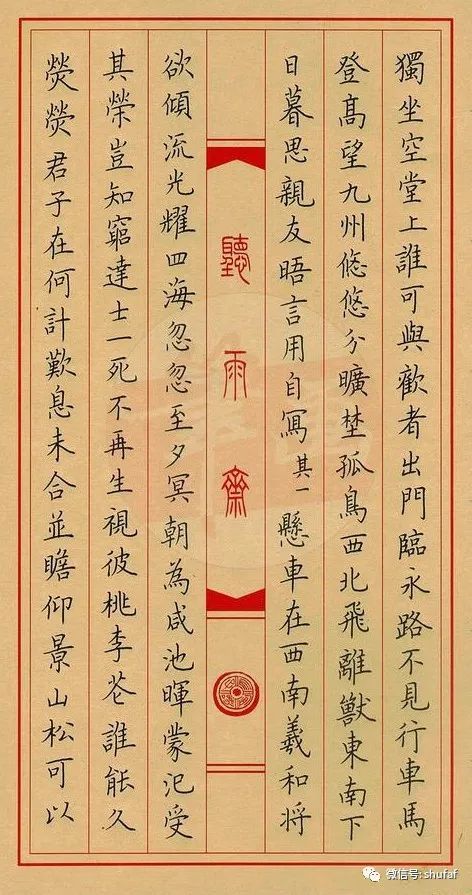 獨坐空堂上誰可與歡者出門臨永路不見行車馬
登髙望九州悠悠分曠埜孤鳥西北飛離獸東南下
日暮思親友晤言用自寫其一懸車在西南羲和将
聽雨齋
欲傾流光耀四海忽忽至夕冥朝為咸池暉蒙汜受
其榮豈知窮達士一死不再生視彼桃李花誰能久
熒熒君子在何計歎息未合並瞻仰景山松可以
微信号: shufaf